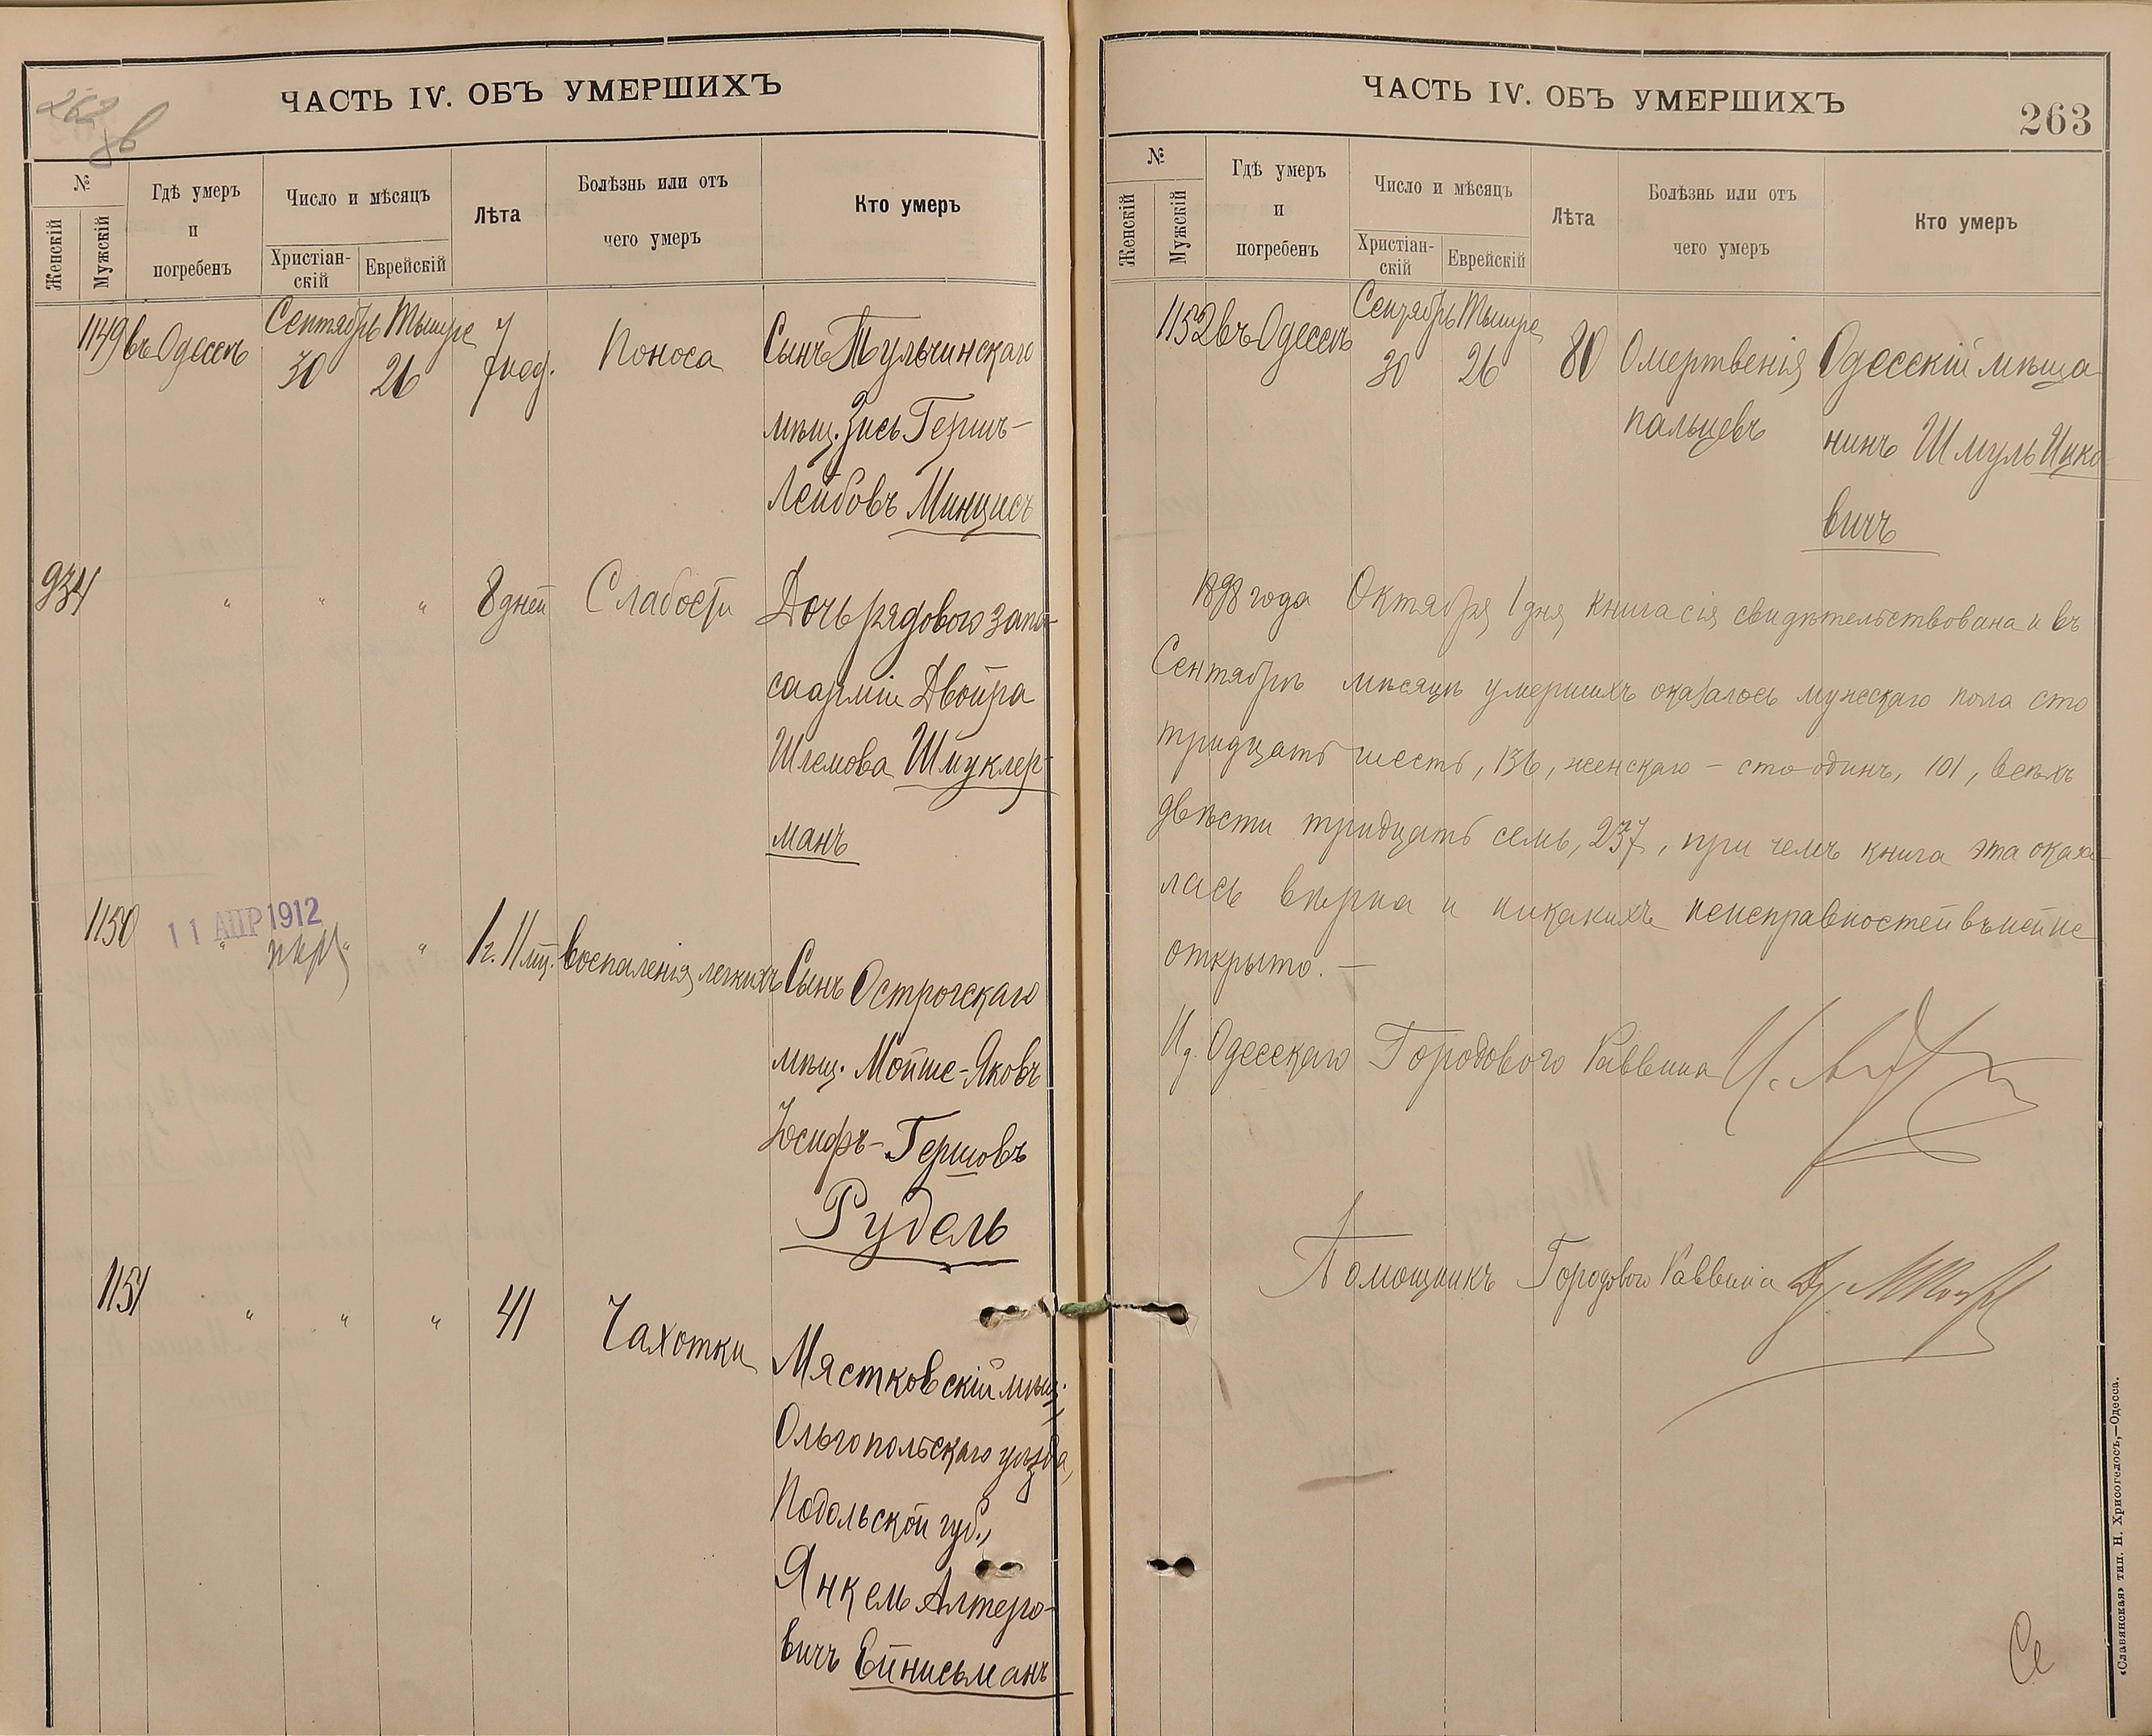 262 об
ЧАСТЬ IV. ОБЪ УМЕРШИХЪ
№
Женскій
Мужскій
Гдѣ умеръ
и
погребенъ
Число и мѣсяцъ
Христіан-
скій
Еврейскій
Лѣта
Болѣзнь или отъ
чего умеръ
Кто умеръ
1149 въ Одессѣ Сентябрь 30 Тышре 26 7 Поноса Сынъ Тульчинскаго
мѣщ. Зись Гершъ-
Лейбовъ Минцисъ
934 " " " 8 дней Слабости Дочь рядового запа-
са арміи Двойра
Шлемова Шмуклер-
манъ
11 АПР 1912
1150 " " " 1 г. 11 мц. воспаленія легкихъ Сынъ Острогскаго
мѣщ. Мойше-Яковъ
Іосифъ-Гершовъ
Рудель
1151 " " " 41 Чахотки Мястковскій мѣщ.
Ольгопольскаго уѣзда,
Подольской губ.,
Янкель Алтеро-
вичъ Ейнисьманъ
ЧАСТЬ IV. ОБЪ УМЕРШИХЪ
263
№
Женскій
Мужскій
Гдѣ умеръ
и
погребенъ
Число и мѣсяцъ
Христіан-
скій
Еврейскій
Лѣта
Болѣзнь или отъ
чего умеръ
Кто умеръ
1152 въ Одессѣ Сентябрь 30 Тышре 26 80 Омертвенія Одесскій мѣща-
пальцевъ нинъ Шмуль Ицко
вичъ
1898 года Октября 1 дня книга сія свидѣтельствована и въ
Сентябрѣ мѣсяцѣ умершихъ оказалось мужескаго пола сто
тридцать шесть, 136, женскаго – сто один, 101, всѣхъ
двѣсти тридцать семь, 237, при чемъ книга эта оказа-
лась вѣрна и никакихъ неисправностей въ ней не
открыто. —
И.д. Одесскаго Городового Раввина
Помощникъ Городового Раввина
«Славянская» тип. Н. Хрисогелосъ,—Одесса.